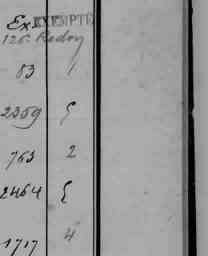 Ex EXEMPTE
126 Redon
83 1
2359 ς
763 2
2464 ξ
1717 4